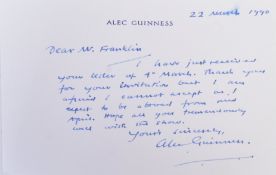 ALEC GUINNESS
22 March 1990
Dear Mr. Franklin
I have just received
your letter of 4th March. Thank you
for your invitation but I am
afraid I cannot accept as I
expect to be abroad from mid
April. Hope all goes tremendously
well with the show.
Yours sincerely,
Alec Guinness.